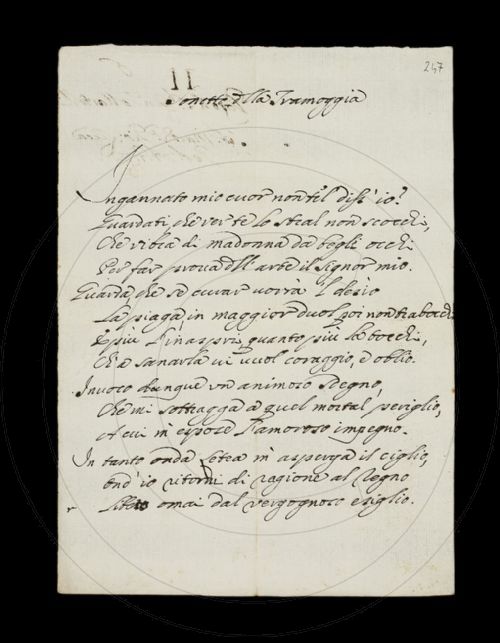 247
II
Sonetto della Tramoggia
Ingannato mio cuor non tel diss' io?
Guardati, che ver te lo stral non scocchi,
Che vibra di madonna da begli occhi
Per far prova dell' arte il signor mio.
Guarda, che se curar vorrà 'l desio
La piaga, in maggior duol poi non trabocchi,
E più s' inaspri, quanto più la tocchi,
Ch' a sanarla vi vuol coraggio, e oblio.
Invoco dunque un animoso sdegno,
Che mi sottragga a quel mortal periglio,
A cui m' espose l' amoroso impegno.
In tanto onda Letea m' asperga il ciglio,
Ond' io ritorni di ragione al Regno
omai dal vergognoso esiglio.